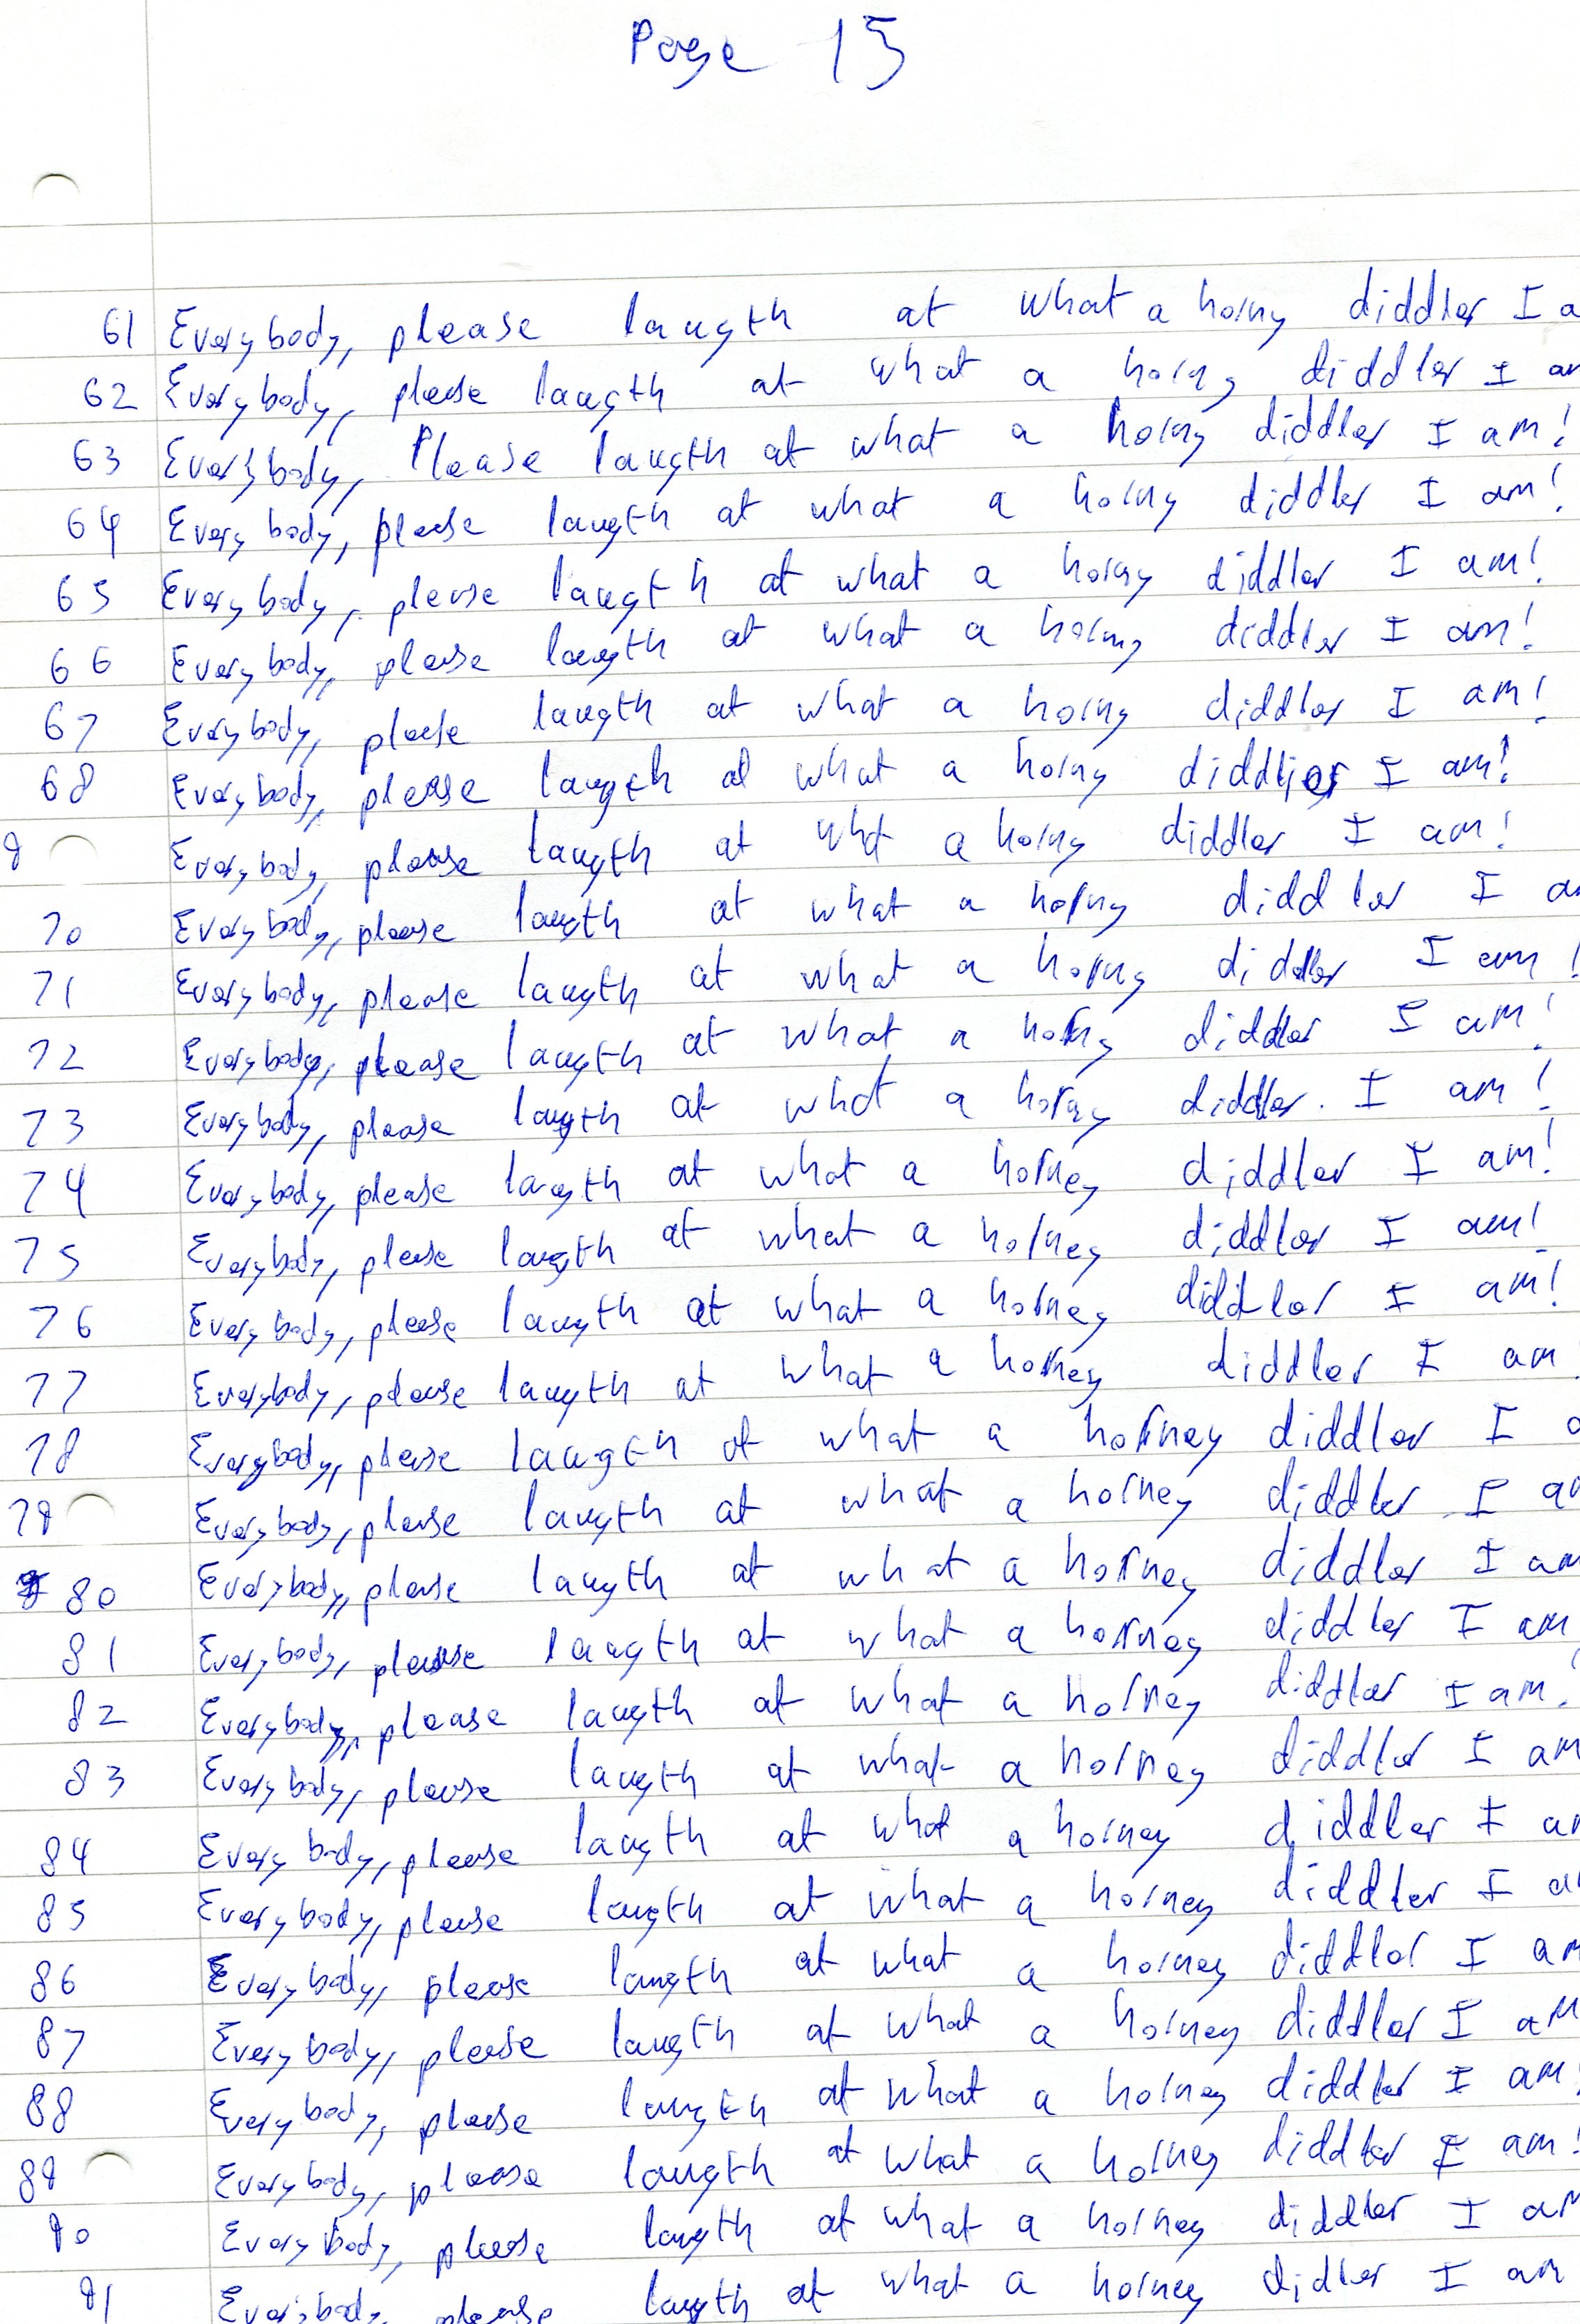 Page 15
61 Everybody, please laugth at what a horny diddler I a
62 Everybody, please laugth at what a horny diddler I am
63 Everybody, Please laugth at what a horny diddler I am!
64 Everybody, please laugth at what a horny diddler I am!
65 Everybody, please laugth at what a horny diddler I am!
66 Everybody, please laugth at what a horny diddler I am!
67 Everybody, please laugth at what a horny diddler I am!
68 Everybody, please laugth at what a horny diddler I am!
9 Everybody, please laugth at what a horny diddler I am!
70 Everybody, please laugth at what a horny diddler I a
71 Everybody, please laugth at what a horny diddler I am!
72 Everybody, please laugth at what a horny diddler I am!
73 Everybody, please laugth at what a horny diddler. I am!
74 Everybody, please laugth at what a horney diddler I am!
75 Everybody, please laugth at what a horney diddler I am!
76 Everybody, please laugth at what a horney diddler I am!
77 Everybody, please laugth at what a horney diddler I am
78 Everybody, please laugth at what a horney diddler I a
79 Everybody, please laugth at what a horney diddler I am
80 Everybody, please laugth at what a horney diddler I am
81 Everybody, please laugth at what a horney diddler I am
82 Everybody, please laugth at what a horney diddler I am!
83 Everybody, please laugth at what a horney diddler I am
84 Everybody, please laugth at what a horney diddler I am
85 Everybody, please laugth at what a horney diddler I am
86 Everybody, please laugth at what a horney diddler I am
87 Everybody, please laugth at what a horney diddler I am
88 Everybody, please laugth at what a horney diddler I am!
89 Everybody, please laugth at what a horney diddler I am!
90 Everybody, please laugth at what a horney diddler I am
91 Everybody, please laugth at what a horney didler I am